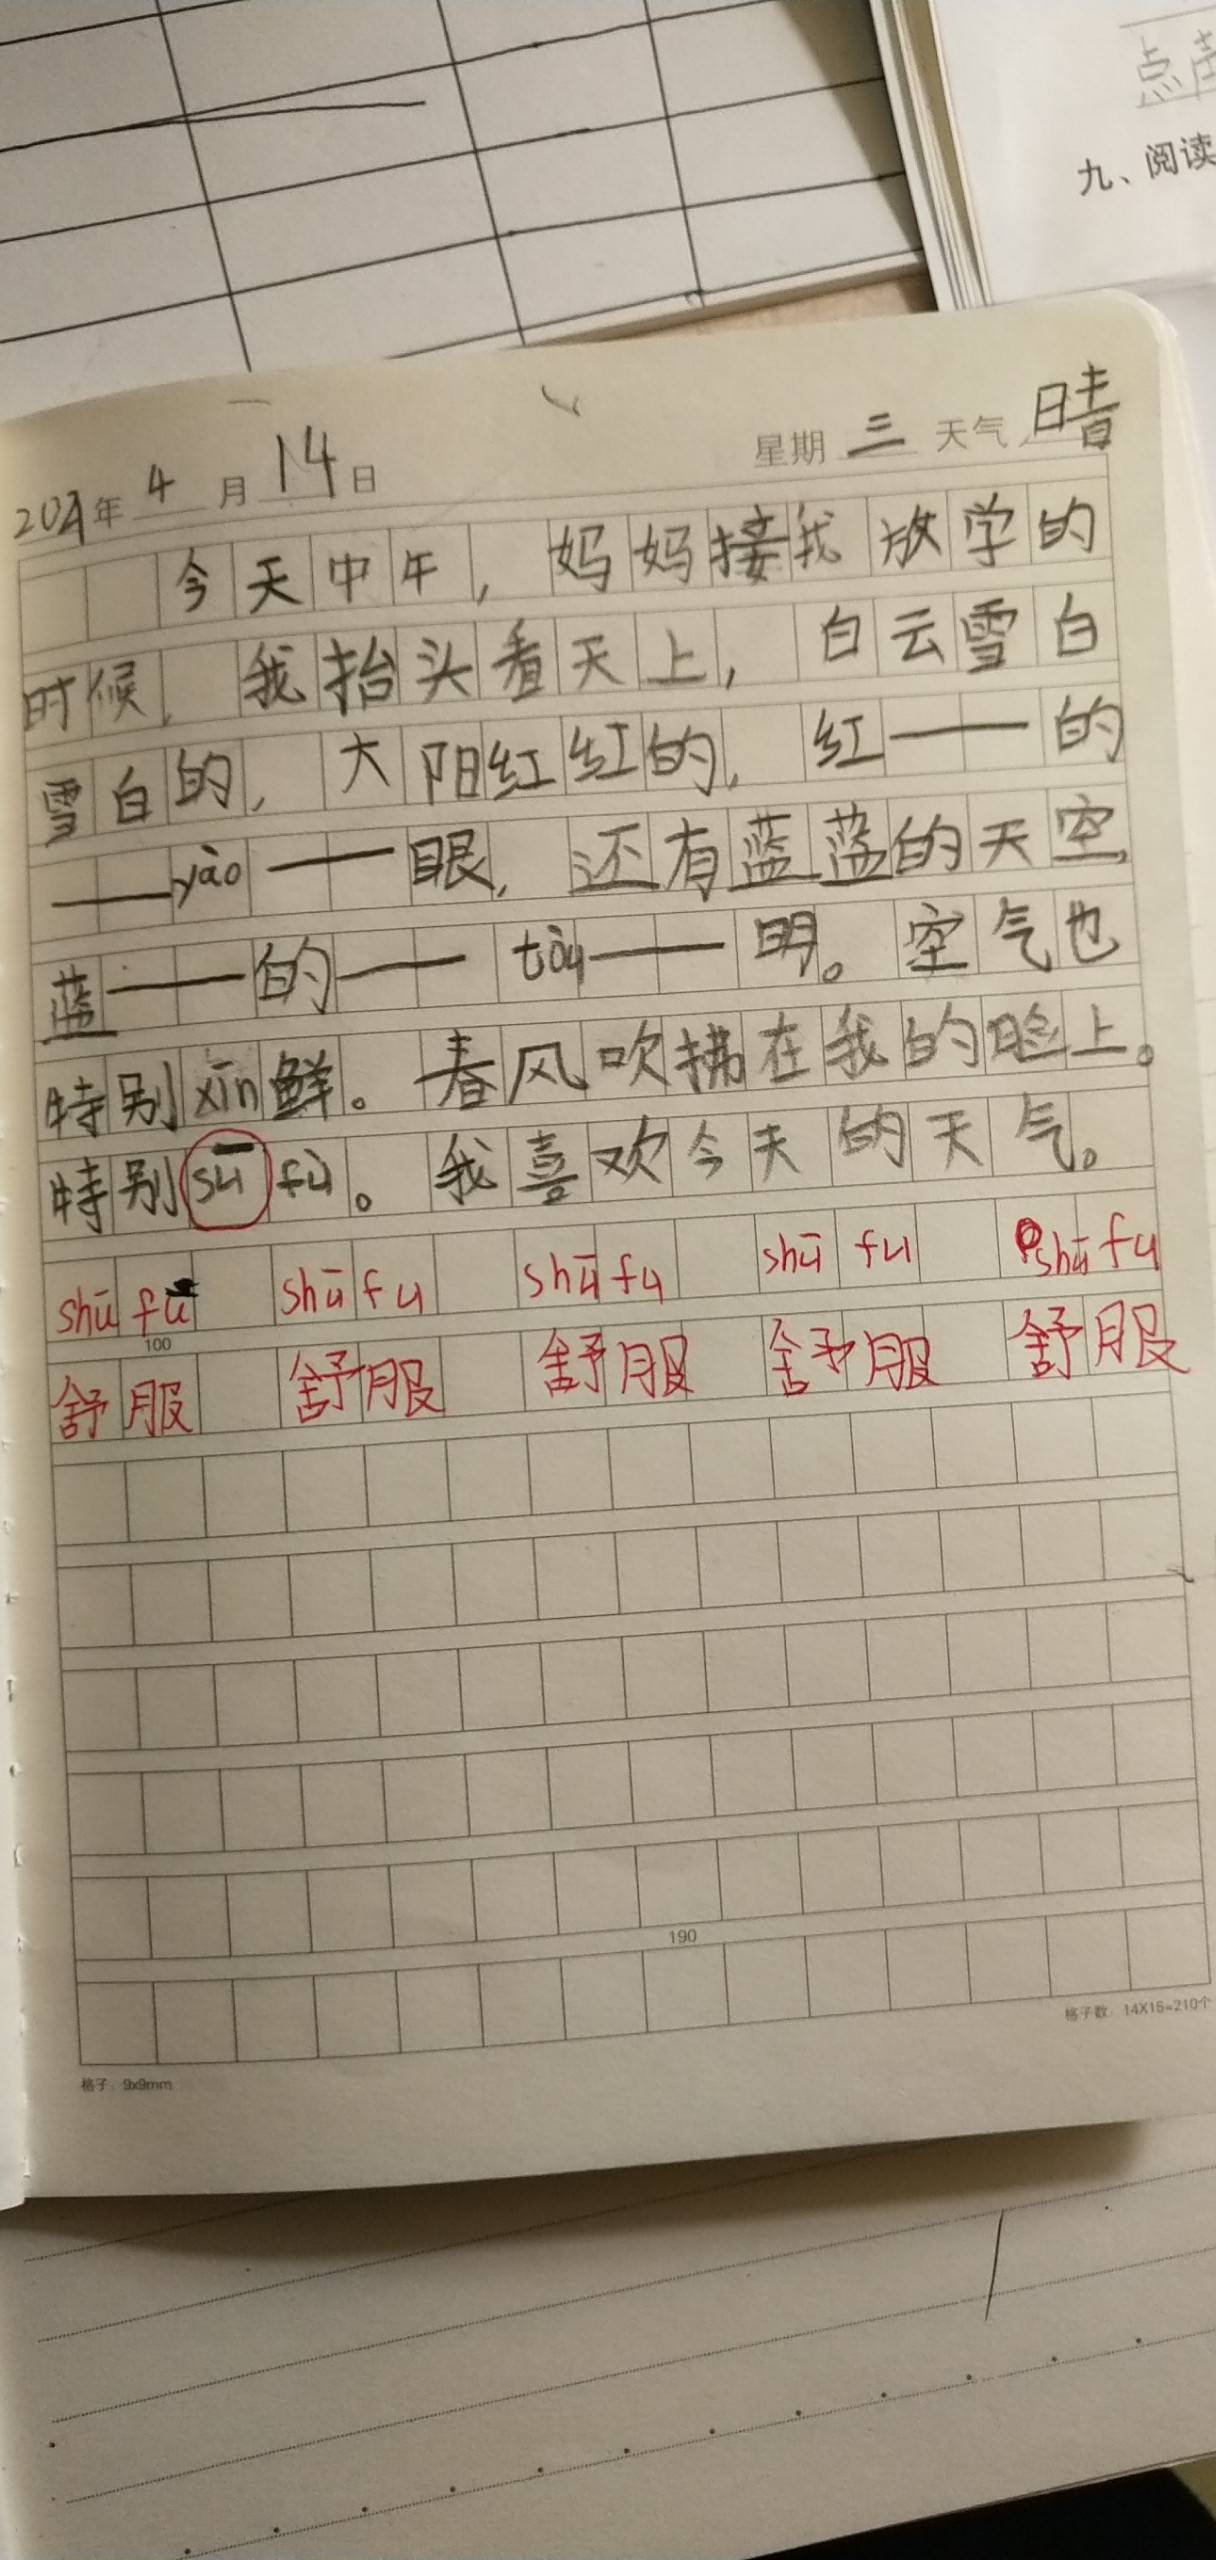 点
九、阅读
2021年 4 月 14 日 星期 三 天气 晴
今天中午，妈妈接我放学的
时候，我抬头看天上，白云雪白
雪白的，大阳红红的，红——的
——yào——眼，还有蓝蓝的天空，
蓝——的——tòu——明。空气也
特别xīn鲜。春风吹拂在我的脸上。
特别sū fu。我喜欢今天的天气。
shū fu shū fu shū fu shū fu shū fu
100
舒服 舒服 舒服 舒服 舒服
190
格子：9x9mm 格子数：14X15=210个